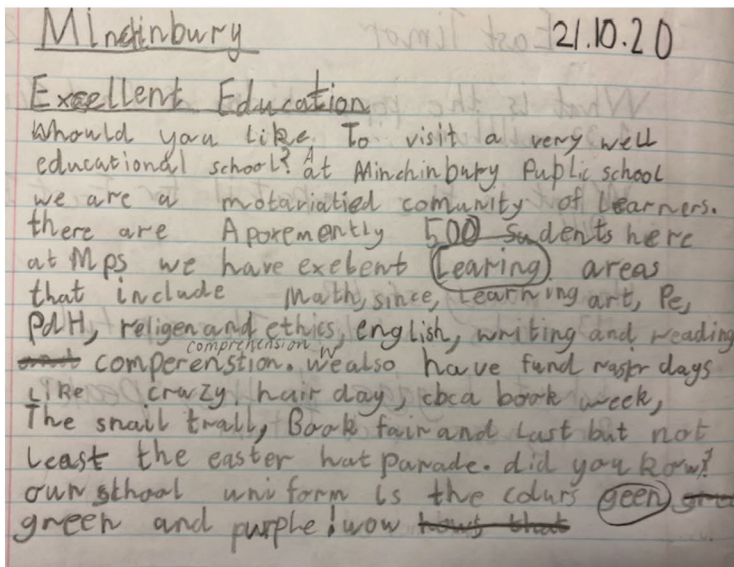 Mindinbury 21.10.20
Excellent Education
Whould you like To visit a very well
educational school? At Minchinbury Public school
we are a motariatied comunity of Learners.
there are Aporemently 500 Sudents here
at Mps we have exelent Learing areas
that include Math, since, Learning art, Pe,
PdH, religen and ethics, english, writing and reading
comprehension
comperenstion. We also have fund rasir days
Like crazy hair day, cbca book week,
The snail trall, Book fair and Last but not
Least the easter hat parade. did you kow?
our sthool uniform is the colurs geen
green and purple! wow hows that